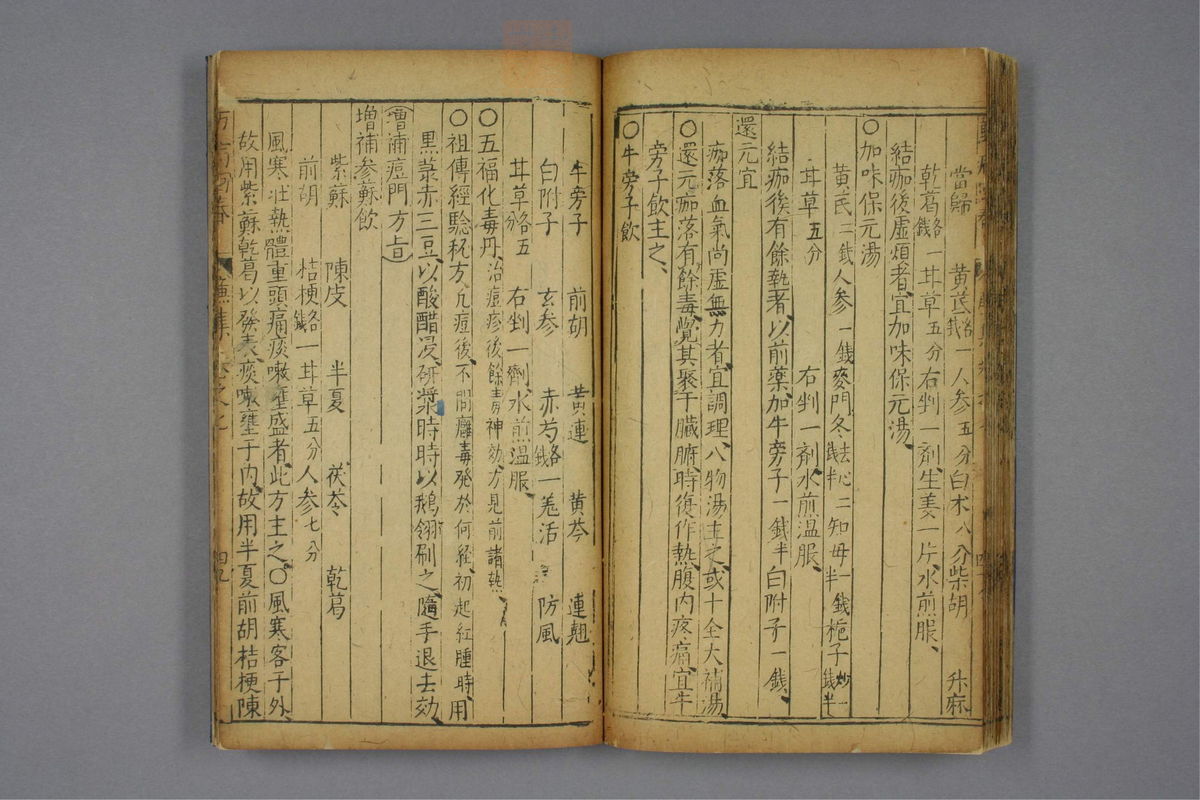 當歸　黃芪各錢一　人參五分　白朮八分　柴胡　升麻
乾葛各錢一　甘草五分　右剉一劑生姜一片水煎服
結痂後虛煩者宜加味保元湯
〇加味保元湯
黃芪二錢　人參一錢　麥門冬去心二錢半　知母一錢半　梔子炒一錢半
甘草五分　右剉一劑水煎溫服
結痂後有餘熱者以前藥加牛旁子一錢半白附子一錢
還元宜
痂落血氣尚虛無力者宜調理八物湯主之或十全大補湯
〇還元痂落有餘毒覺其聚于臟腑時復作熱腹內疼痛宜牛
旁子飲主之
〇牛旁子飲
牛旁子　前胡　黃連　黃芩　連翹
白附子　玄參　赤芍各錢一　羗活　防風
甘草各五分　右剉一劑水煎溫服
〇五福化毒丹治痘疹後餘毒神効方見前諸熱
〇祖傳經驗秘方凢痘後不問癰毒發於何經初起紅腫時用
黑菉赤三豆以酸醋浸研漿時時以鵝翎刷之隨手退去効
增補痘門方旨
增補參蘇飲
紫蘇　陳皮　半夏　茯苓　乾葛
前胡　桔梗各錢一　甘草五分　人參七分
風寒壯熱體重頭痛痰嗽壅盛者此方主之〇風寒客于外
故用紫蘇乾葛以發表痰嗽壅于內故用半夏前胡桔梗陳